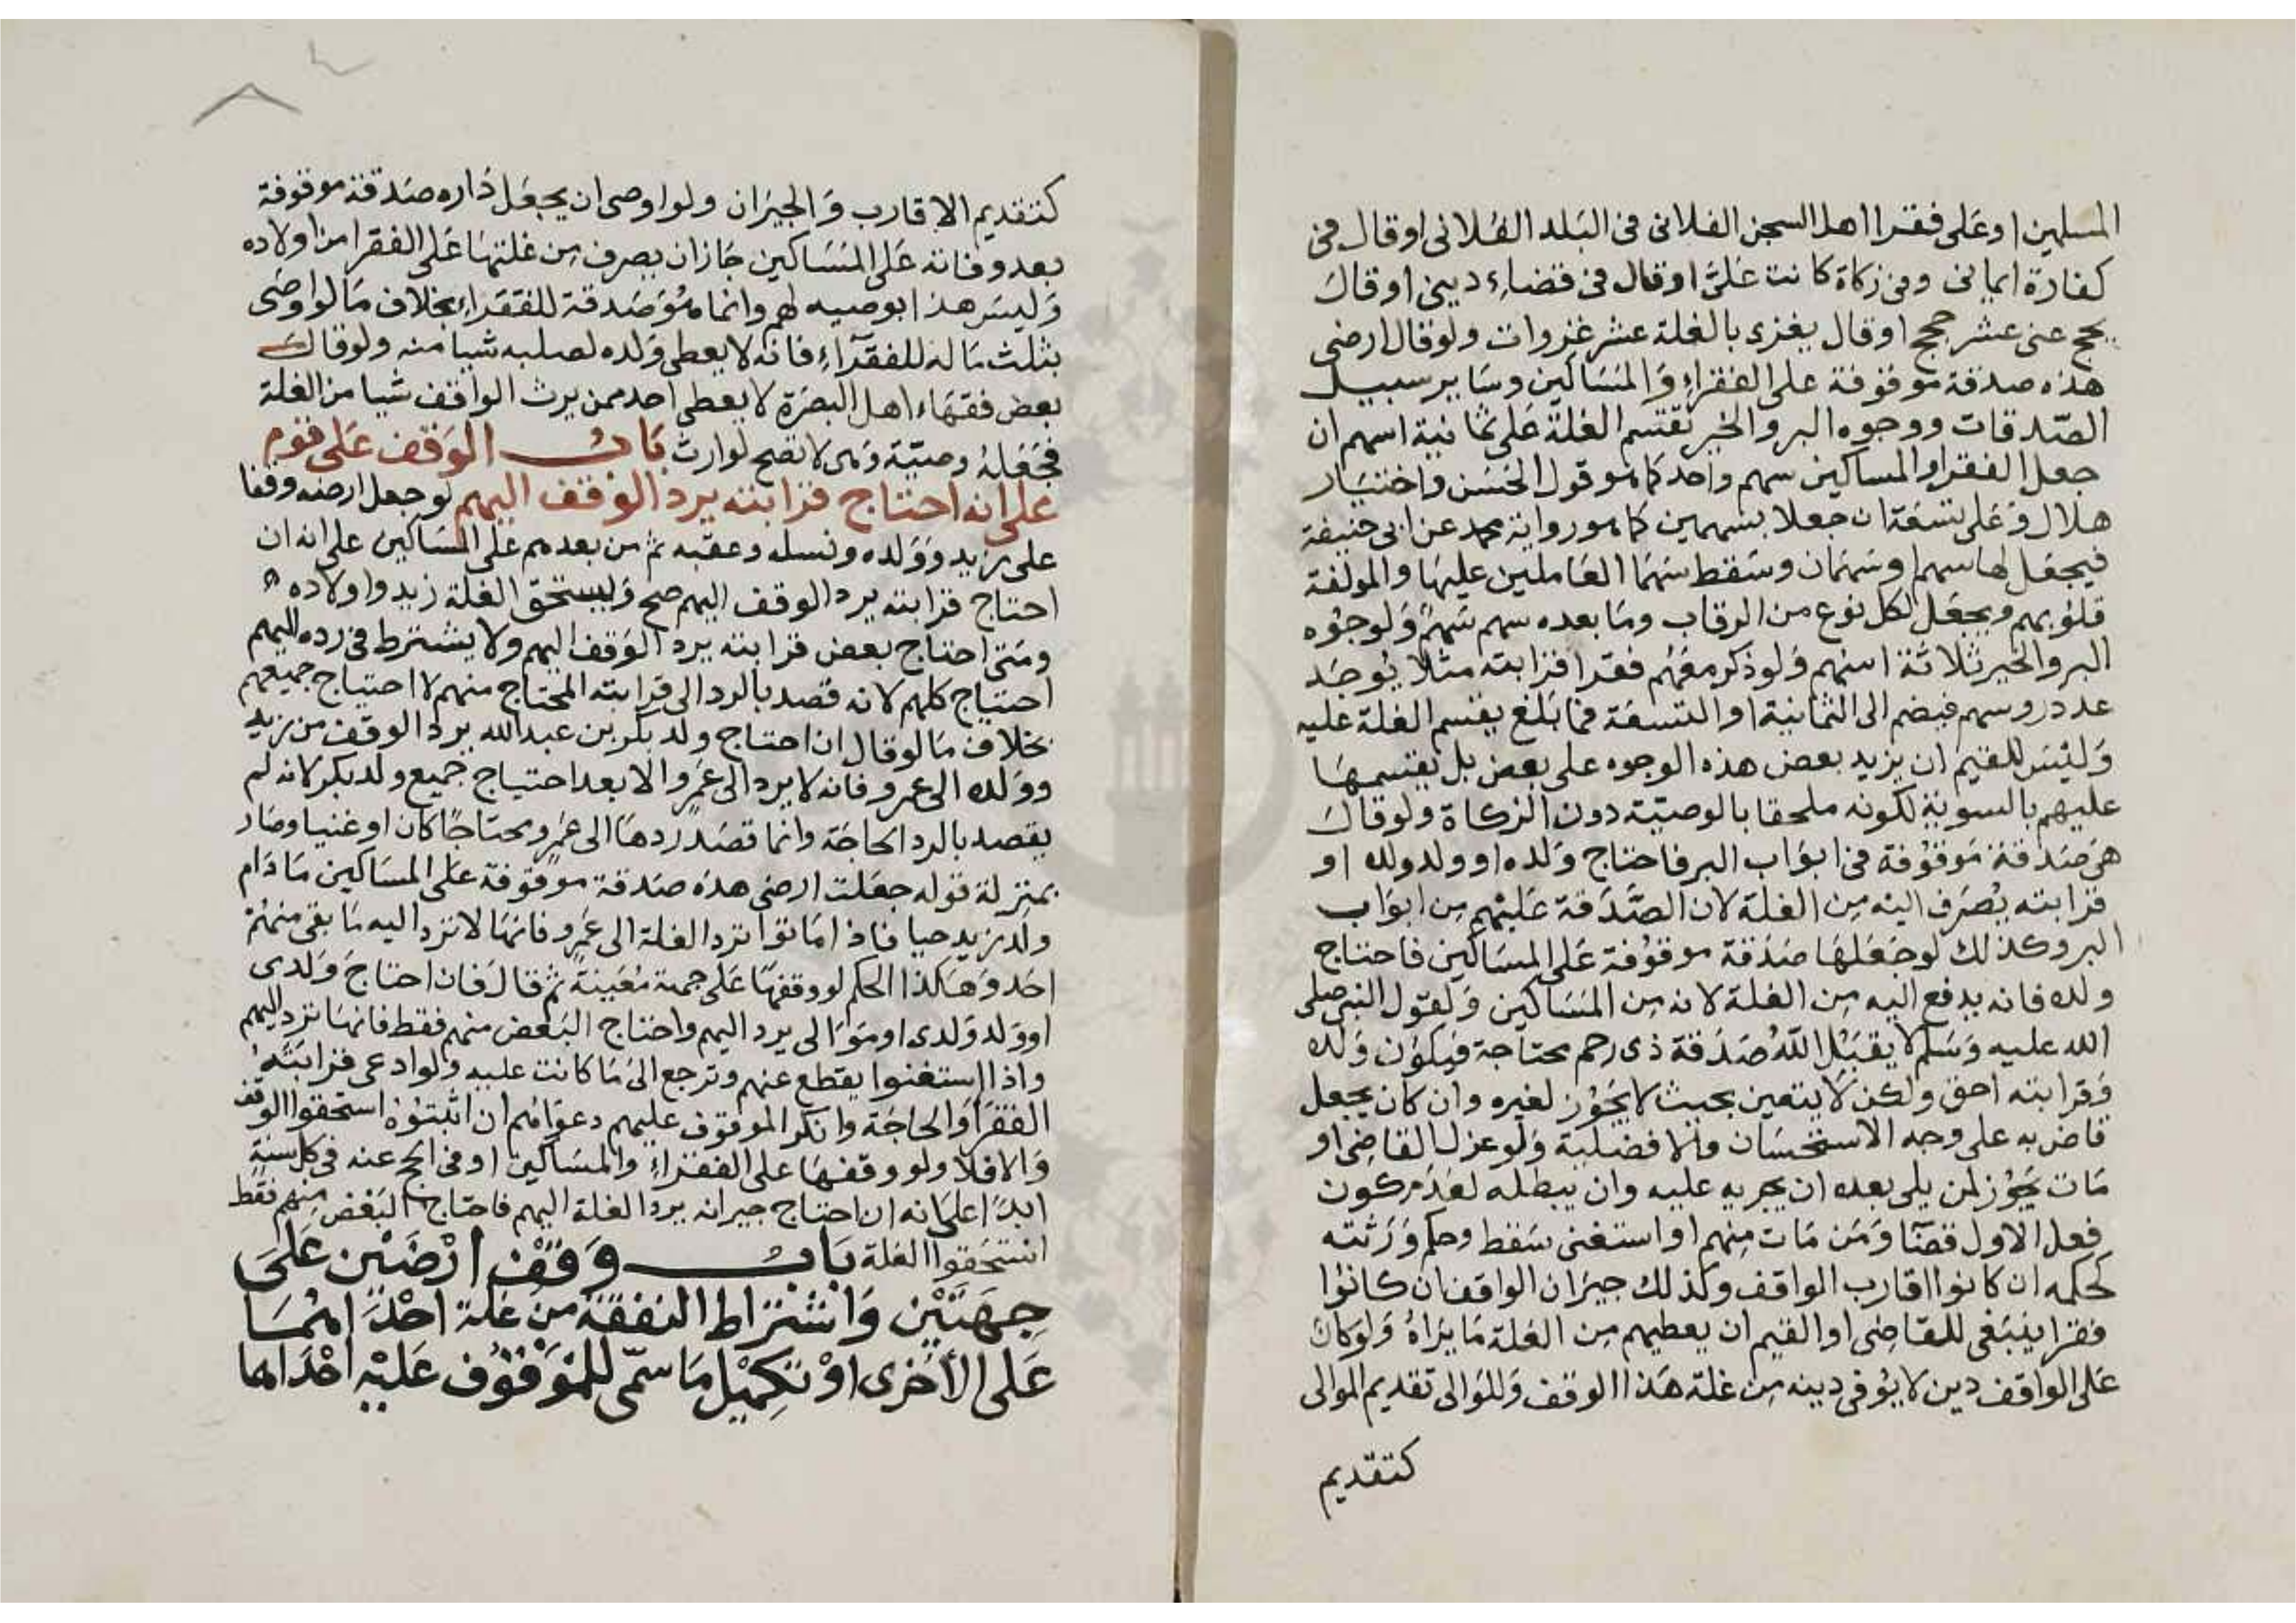 المسلمين او على فقرا اهل السجن الفلانى فى البلد الفلانى او قال فى
كفارة ايمانى وفى زكاة كانت علىّ او قال فى قضاء دينى او قال
يحج عنى عشر حجج او قال يغزى بالغلة عشر غزوات ولو قال ارضى
هذه صدقة موقوفة على الفقراء وَالمسَاكين وسَاير سبيل
الصّدقات ووجوه البر والخير تقتسم الغلة على ثمانية اسهم ان
جعل الفقرا والمساكين سهم واحد كما هو قول الحسَن واختيَار
هلال وَعلى تسعة ان جعلا بسهمين كما هو رواية محمد عن ابى حنيفة
فيجعَل لها سهم او سَهمان وسَقط سَهمَا العَاملين عليهَا والمولفة
قلوبهم ويجعَل لكل نوع من الرقاب ومَا بعده سهم سَهمٌ وَلوجوُه
البر والخير ثلاثة اسهم وَلو ذكر معَهُم فقرا قرابته مثلا يوُجَد
عدد روسهم فيضم الى الثمانية او التسعَة فما بَلغ يقسم الغلة عليه
وَليسَ للقيم ان يزيد بعض هذه الوجوه على بعض بل يقسمهَا
عليهم بالسوية لكونه ملحقا بالوصيّة دون الزكاة ولو قال
هى صَدقة مَوقوُفة فى ابوَاب البر فاحتاج وَلده او ولد ولده او
قرابته يُصَرف اليْه مِن الغلة لان الصَّدَقة عَليْهم مِن ابوَاب
البر وكذلك لو جَعَلهَا صَدَقة موقوُفة عَلى المسَاكين فاحتاج
ولده فانه يدفع اليه مِن الغلة لانه مِن المسَاكين وَلقول النبى صلى
الله عليه وَسَلم لا يقبَل اللّٰهُ صَدَقة ذى رحم محتاجة فيكوُن وَلده
وَقرابته احق ولكن لا يتعين بحيث لا يجوُز لغيره وان كان يجعل
قاض به على وجه الاستحسَان والافضلية وَلو عزل القاضى او
مَات يجوُز لمن يلى بعده ان يجريه عليه وان يبطله لعَدَم كون
فعل الاول قضَا وَمَن مَات مِنهم او استغنى سَقط وحكم وَرَثته
كحكمه ان كانوا اقارب الواقف وكذلك جيرَان الواقف ان كانوُا
فقرا ينبَغى للقاضِى او القيم ان يعطيهم مِن الغلة مَا يَرَاهُ وَلو كان
عَلى الواقف دين لا يوُفى دينه مِن غلة هَذا الوقف وَللوَالى تقديم الموالى
كتقديم
كتقديم الاقارب وَالجيرَان ولو اوصى ان يجعَل دَاره صَدقة موقوفة
بعد وفاته عَلى المسَاكين جَاز ان يصرف مِن غلتهَا عَلى الفقرا من اولاده
وَليسَ هذا بوصيه لهم وانما هُوَ صَدقة للفقَراء بخلاف مَا لو اوصَى
بثلث مَاله للفقرَاء فانه لا يعطى وَلده لصلبه شيا منه ولو قال
بعض فقهَاء اهل البصرَة لا يعطى احد ممن يرث الواقف شيا من الغلة
فجَعَلهُ وصيّة وَهى لا تصح لوارث بَابُ الوَقف عَلى قوم
على انه احتاج قرابته يرد الوقف اليهم لو جعل ارضه وقفا
على زيد وَوَلده ونسله وعقبه ثم من بعدهم على المسَاكين على انه ان
احتاج قرابته يرد الوقف اليهم صح وَيستحق الغلة زيد واولاده
ومَتى احتاج بعض قرابته يرد الوَقف اليهم ولا يشترط فى رده اليهم
احتياج كلهم لانه قصد بالرد الى قرابته المحتاج منهم لا احتياج جميعهم
بخلاف مَا لو قال ان احتاج ولد بكر بن عبد الله يرد الوقف من زيد
ووَلده الى عمرو فانه لا يرد الى عَمرو الا بعد احتياج جميع ولد بكر لانه لم
يقصد بالرد الحاجَة وانما قصَد ردهَا الى عَمرو محتاجًا كان او غنيا وصَار
بمنزلة قوله جعَلت ارضى هذه صَدقة موقوفة عَلى المسَاكين مَا دَام
ولد زيد حيا فاذا مَاتوا ترد الغلة الى عَمرو فانهَا لا ترد اليه مَا بقى منهُمْ
احَد وَهَكذا الحكم لو وقفهَا عَلى جهة مُعَينةٍ ثم قال فان احتاجَ وَلدى
او وَلد وَلدى او موَالى يرد اليهم واحتاج البَعض منهم فقط فانهَا ترد اليهم
واذا استغنوا يقطع عنهم وترجع الىَ مَا كانت عليه ولو ادعى قرابَتهُ
الفقرَ اوَالحاجَة وانكر الموقوف عليهم دعوَاهُم ان اثبتوُهُ استحقوا الوقف
وَالا فلا ولو وقفهَا على الفقرَاءِ وَالمسَاكين او فى الحج عنه فى كل سَنةٍ
ابدَا على انه ان احتاج جيرانه يرد الغلة اليهم فاحتاج البَعْض مِنهم فقط
استَحَقوا الغلة بَابُ وَقْف ارْضَيْن عَلىَ
جِهَتَيْن وَاشْتراط النفَقةِ مِنْ غلة احْدَاهُمَا
عَلى الأخرى اوْ تكمِيْل مَا سمّى للمَوْقوُف عَليْهِ احْدَاها